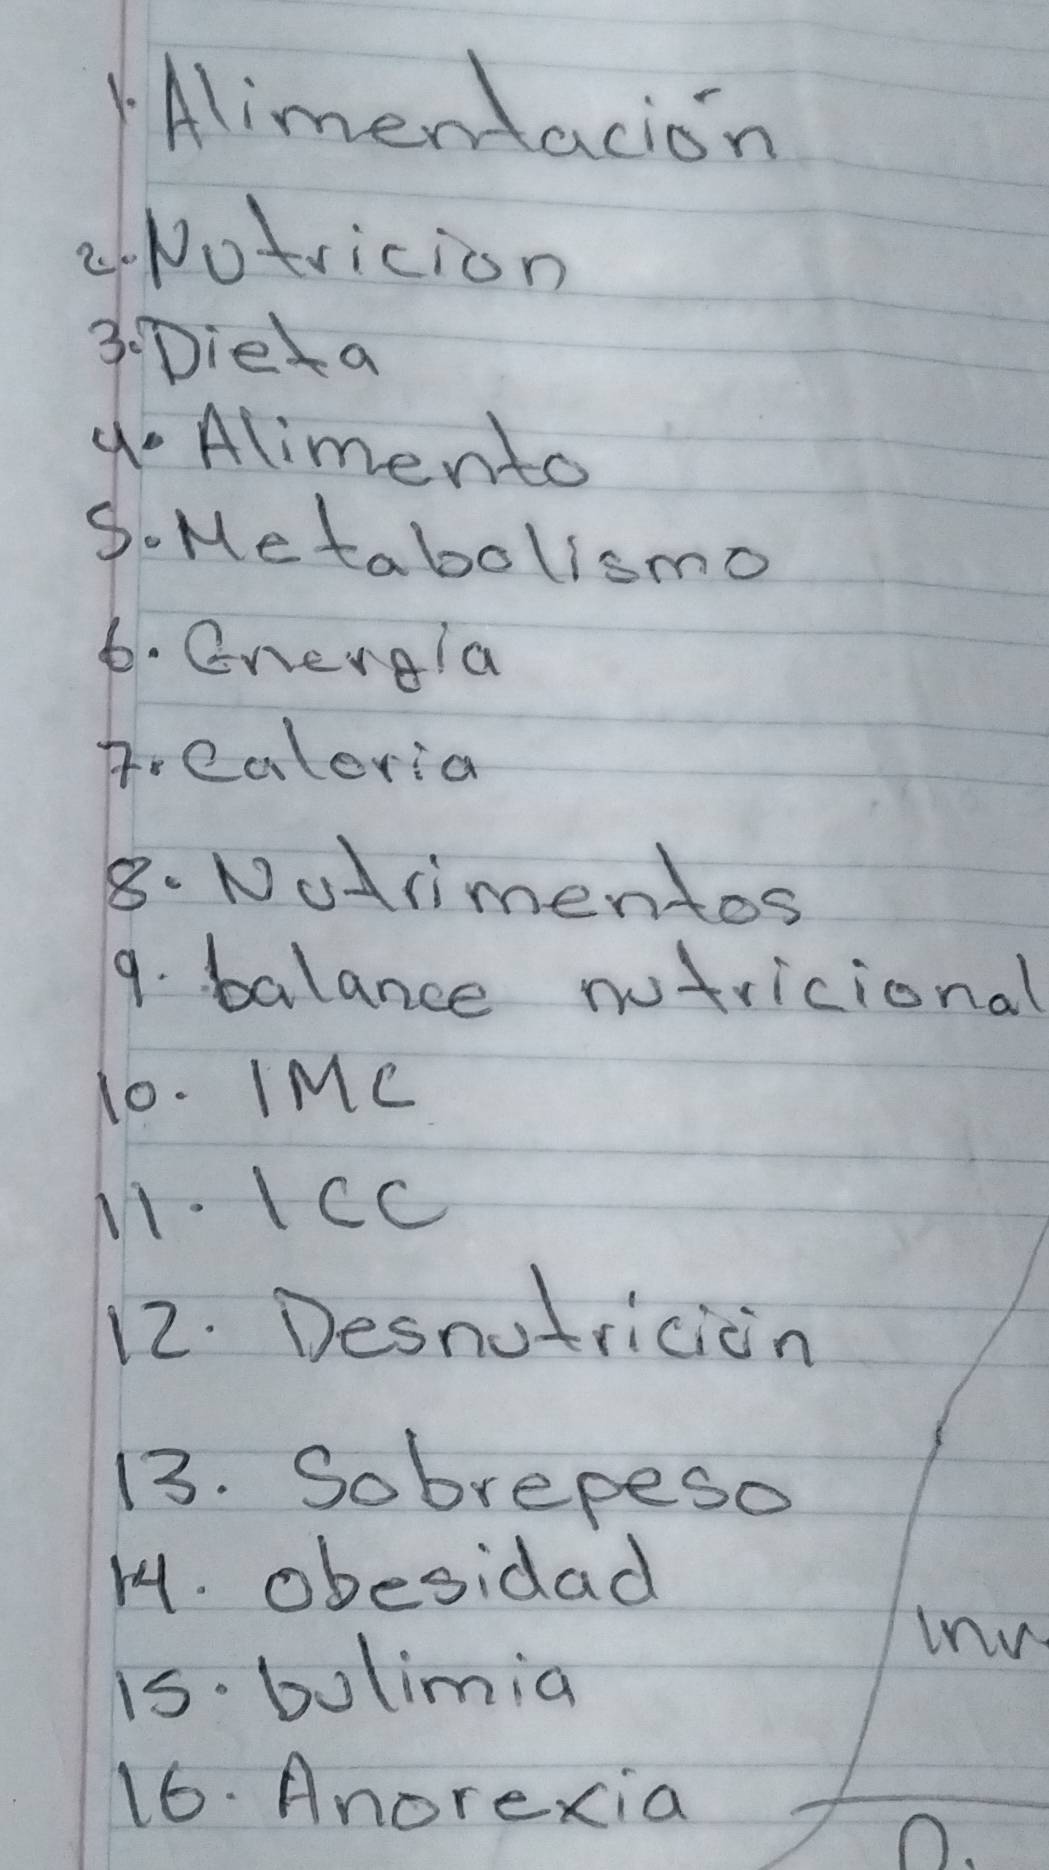 1. Alimentación
2. Nutricion
3. Dieta
4. Alimento
5. Metabolismo
6. Energía
7. Caloria
8. Nutrimentos
9. balance nutricional
10. IMC
11. ICC
12. Desnutrición
13. Sobrepeso
14. obesidad
15. bulimia
16. Anorexia